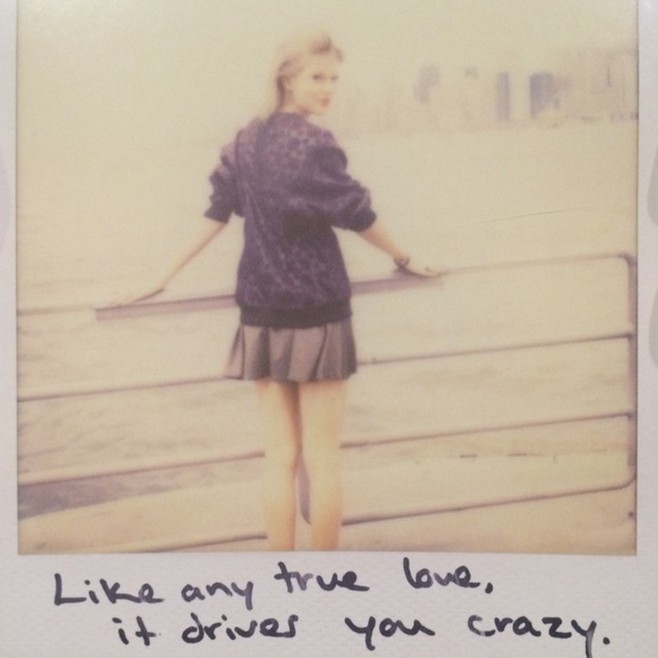 Like any true love,
it drives you crazy.